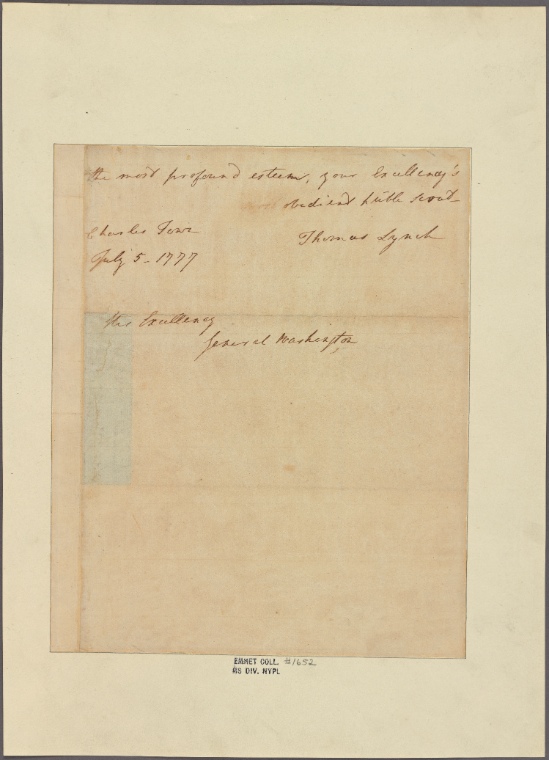 the most profound esteem, your Excellency's
obedient hble servt
Charles Town
Thomas Lynch
July 5- 1777
His Excellency
General Washington
EMMET COLL. #1652
MS DIV. NYPL